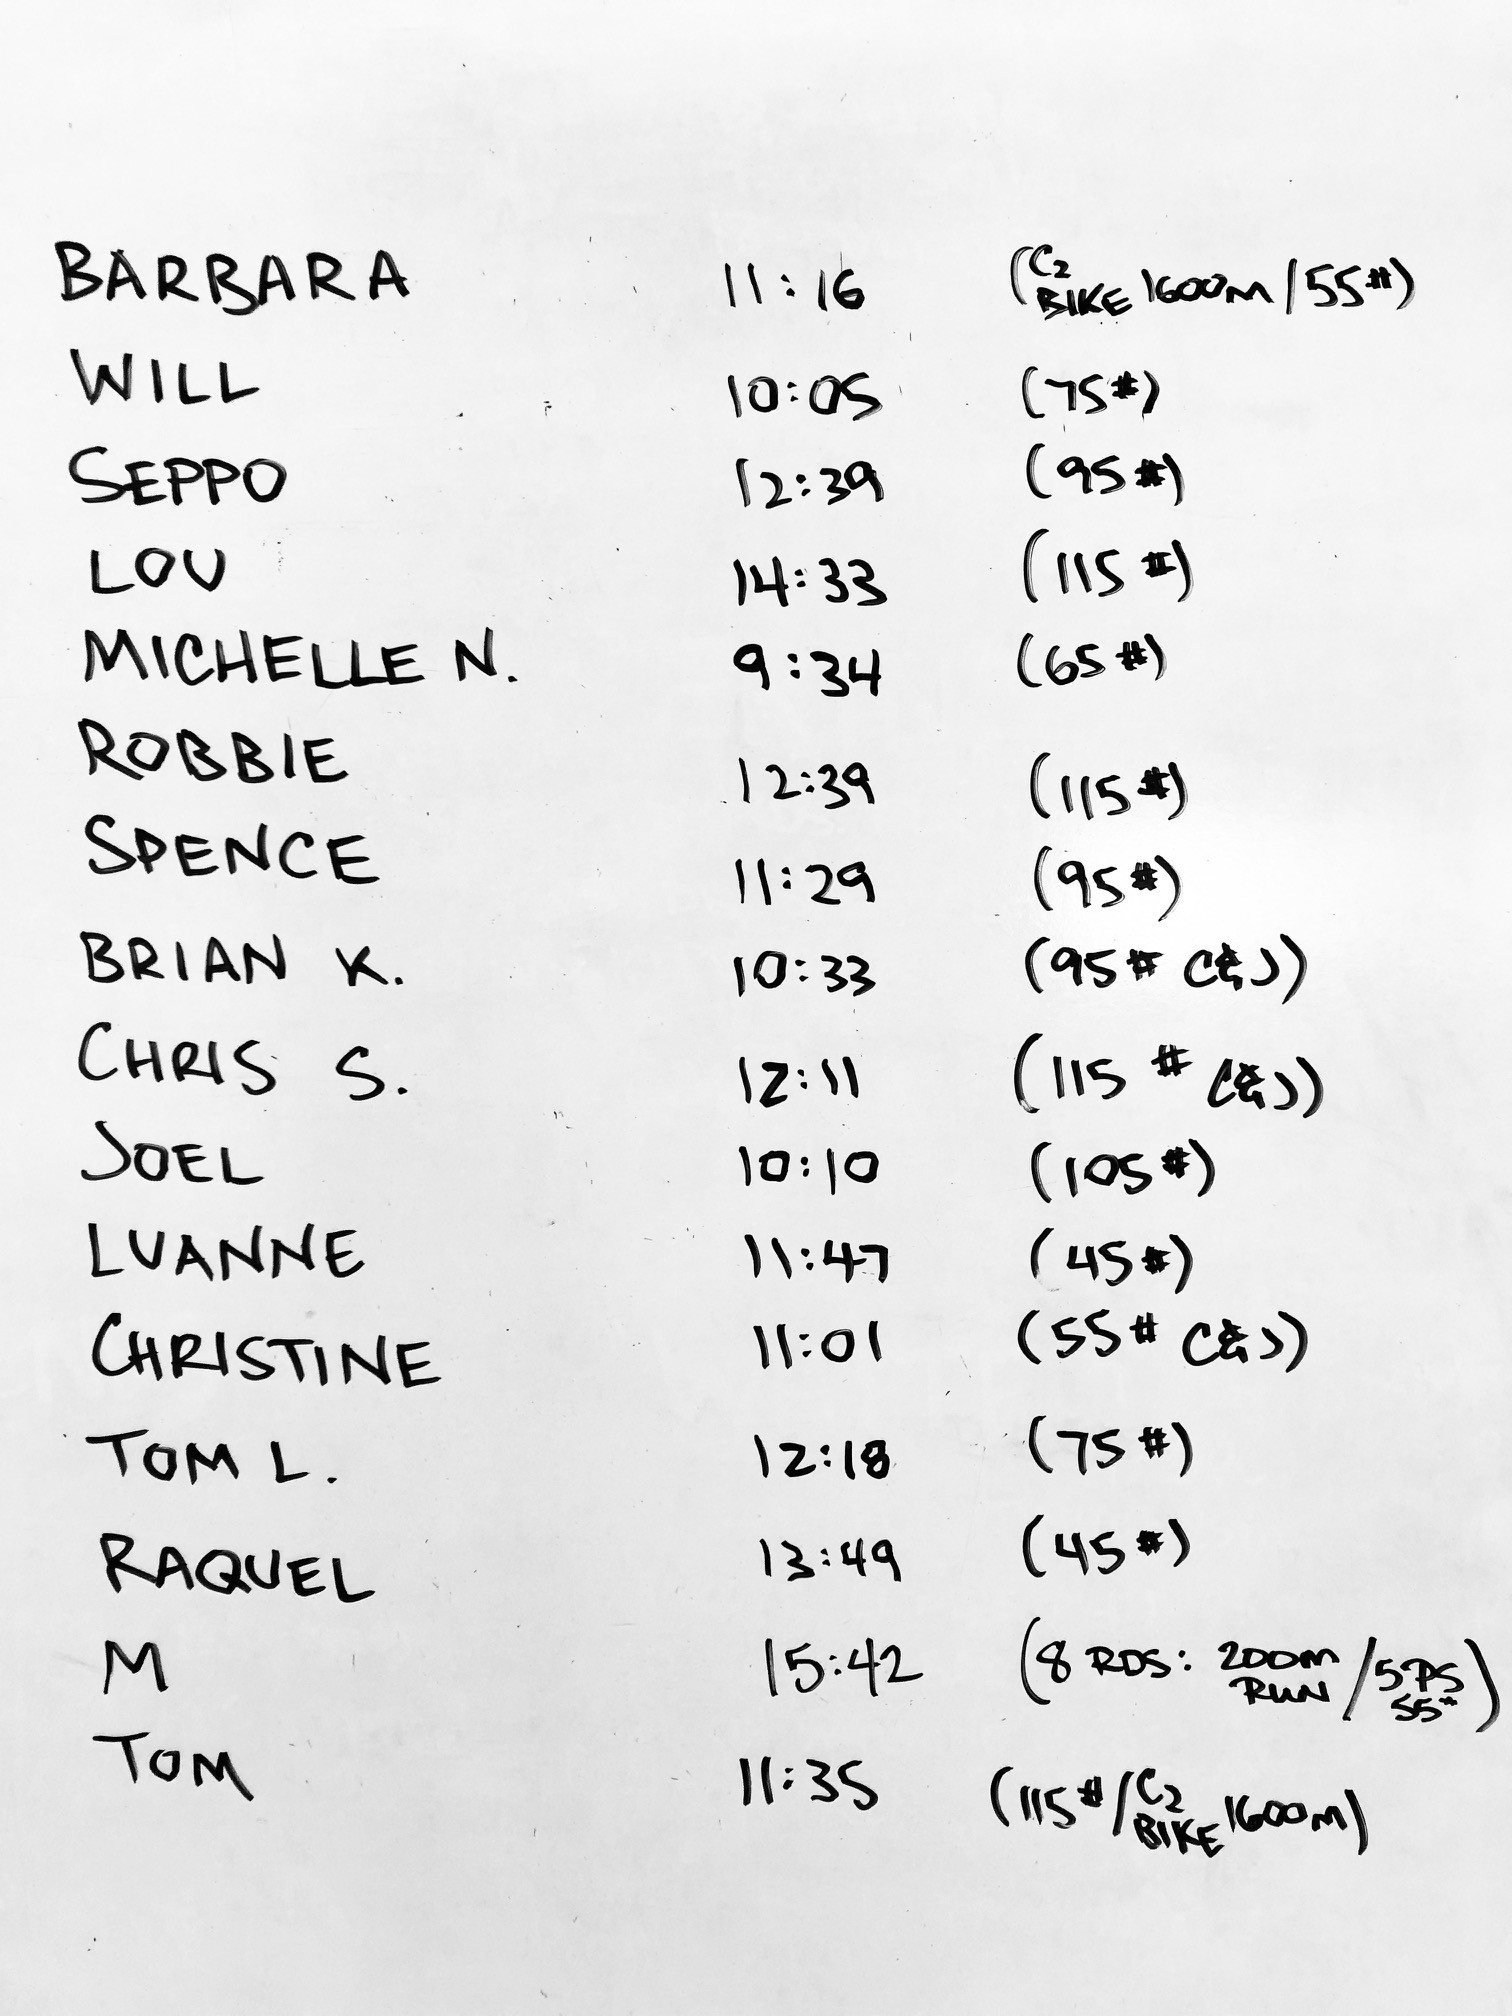 BARBARA 11:16 (C2 BIKE 1600M/55#)
WILL 10:05 (75#)
SEPPO 12:39 (95#)
LOU 14:33 (115#)
MICHELLE N. 9:34 (65#)
ROBBIE 12:39 (115#)
SPENCE 11:29 (95#)
BRIAN K. 10:33 (95# C&J)
CHRIS S. 12:11 (115# C&J)
JOEL 10:10 (105#)
LUANNE 11:47 (45#)
CHRISTINE 11:01 (55# C&J)
TOM L. 12:18 (75#)
RAQUEL 13:49 (45#)
M 15:42 (8 RDS: 200M RUN/5 PS 55#)
TOM 11:35 (115#/C2 BIKE 1600M)